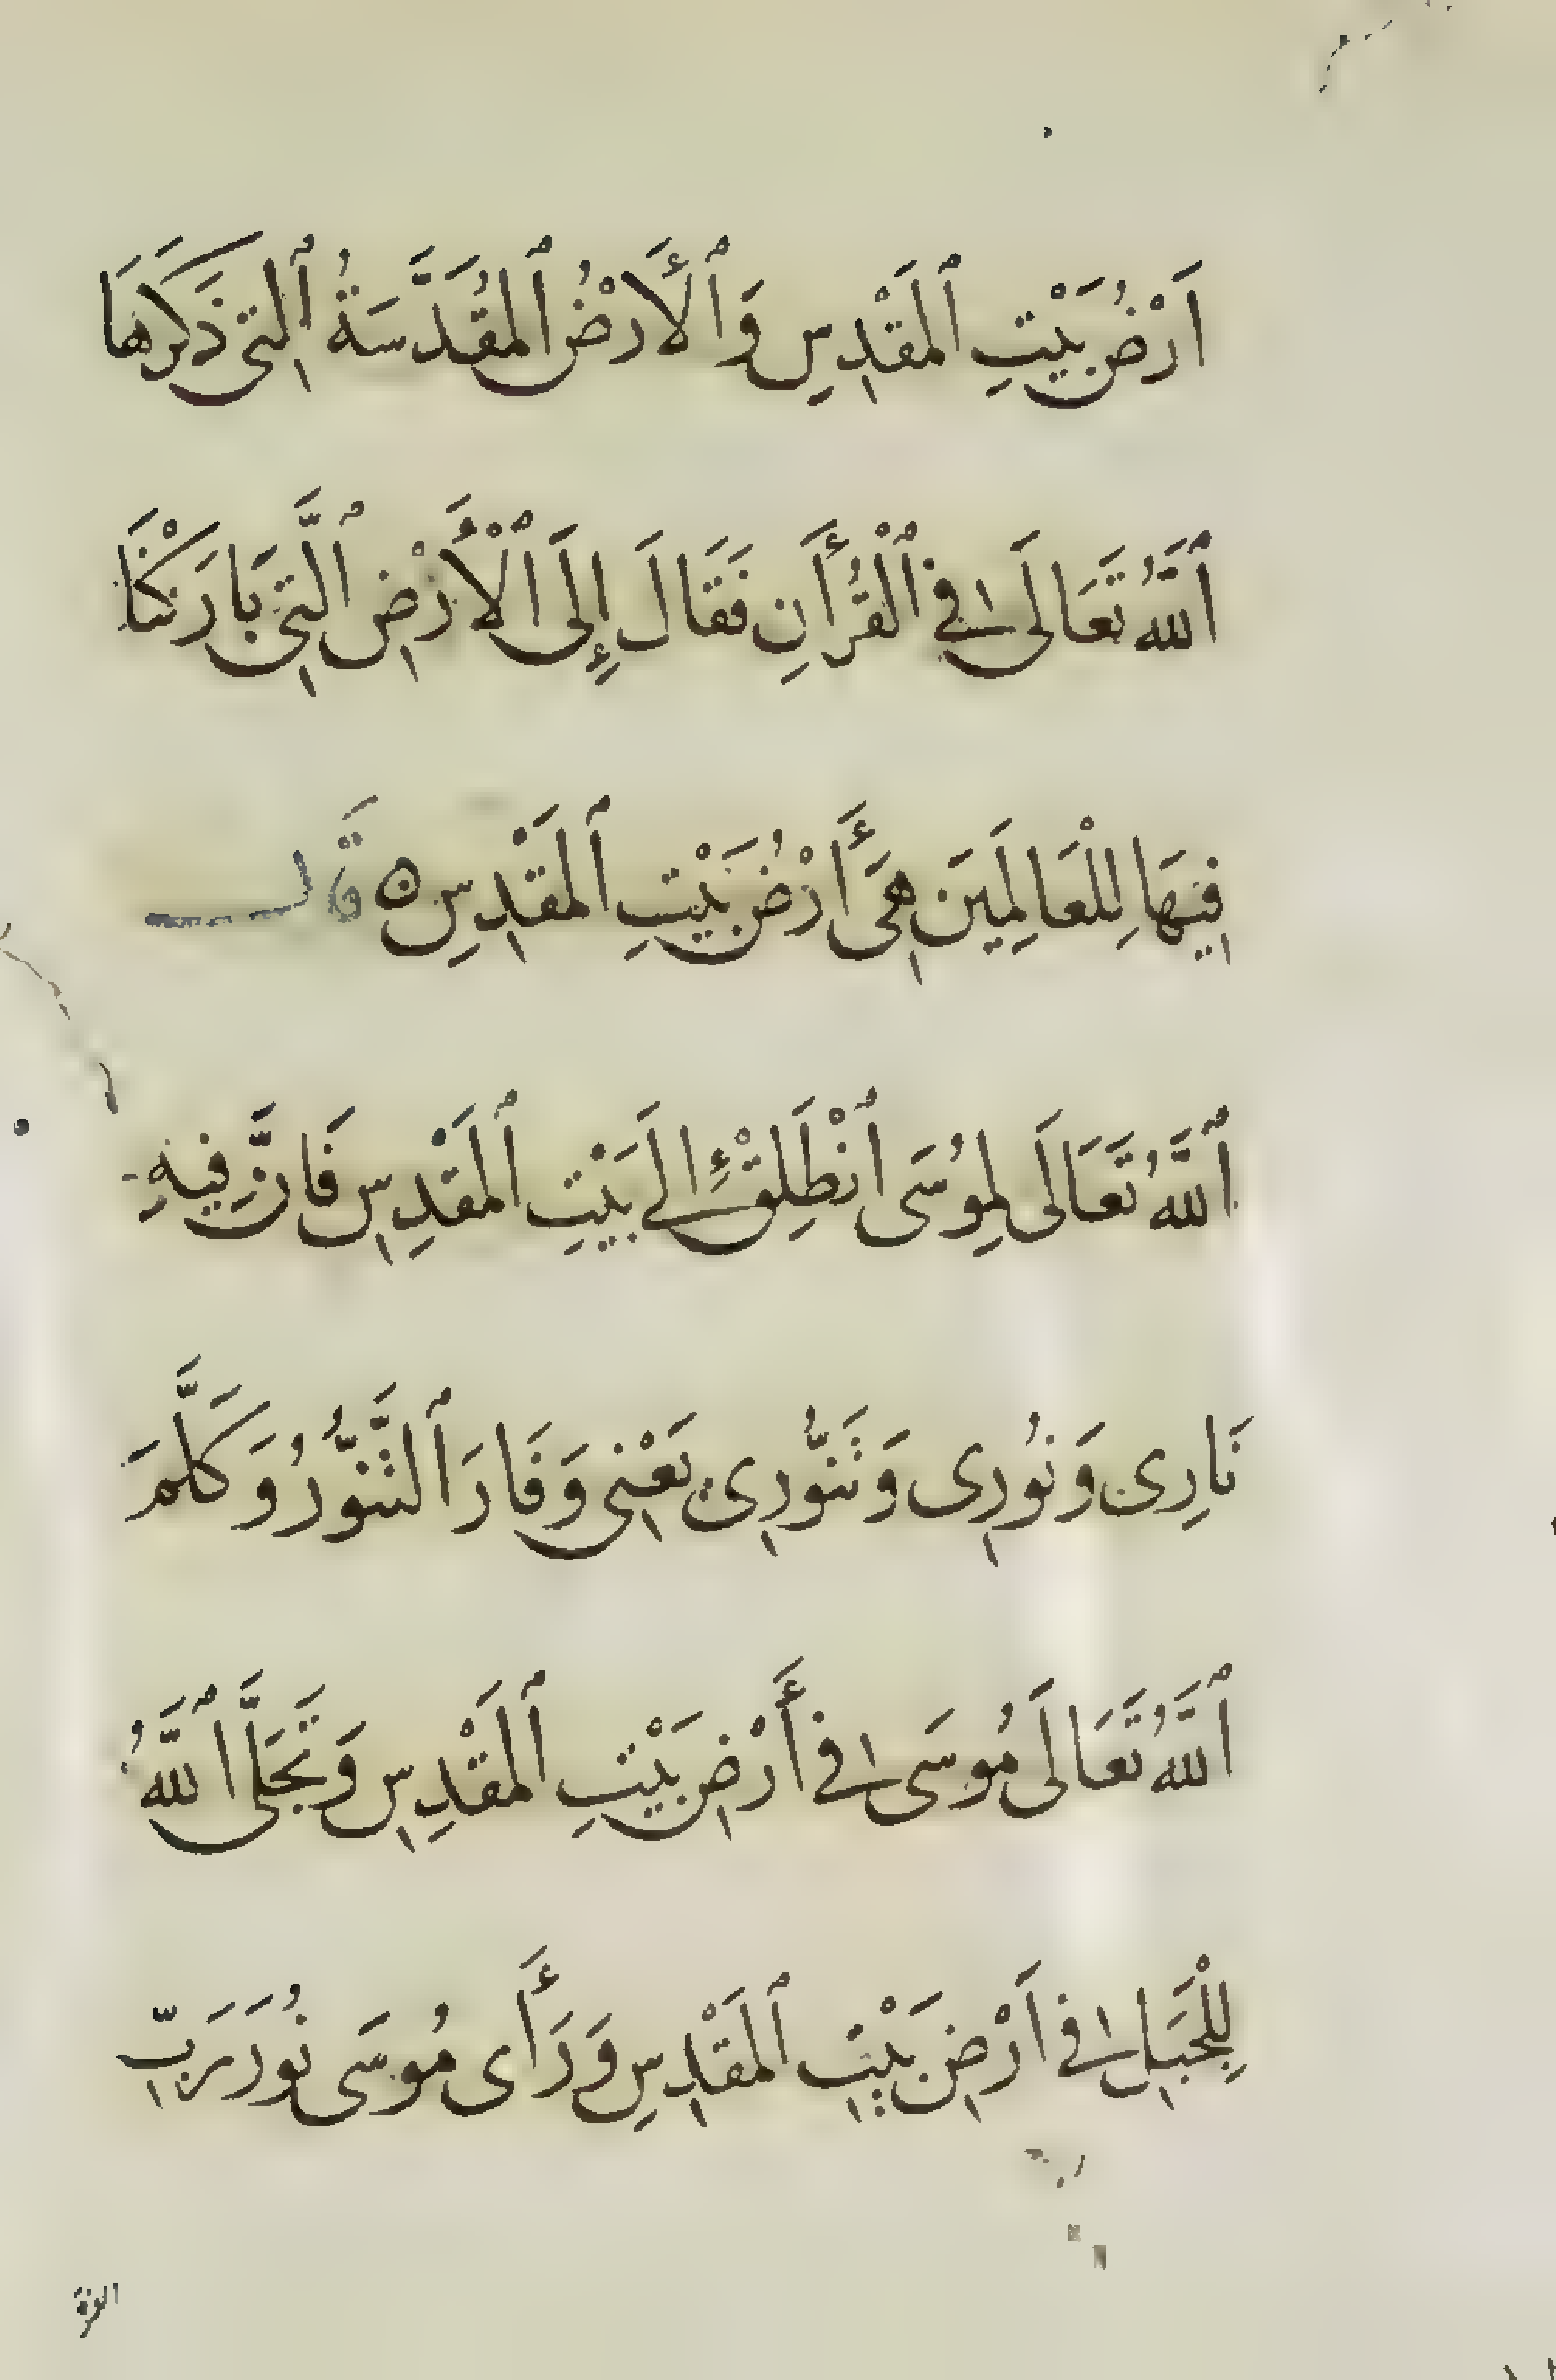 اَرْضُ بَيْتِ ٱلمَقْدِسِ وَٱلأَرْضُ ٱلمُقَدَّسَةُ ٱلتِى ذَكَرَهَا
ٱللَّهُ تَعَالَى فِى ٱلْقُرْأَنِ فَقَالَ إِلَى ٱلْأَرْضِ ٱلَّتِى بَارَكْنَا
فِيهَا لِلْعَالَمِينَ هِىَ أَرْضُ بَيْتِ ٱلمَقْدِسِ ۝ قَالَ
ٱللَّهُ تَعَالَى لِمُوسَى ٱنْطَلِقْ إِلَى بَيْتِ ٱلمَقْدِسِ فَاِنَّ فِيهِ
نَارِى وَنُورِى وَتَنُّورِى يَعْنِى وَفَارَ ٱلتَّنُّورُ وَكَلَّمَ
ٱللَّهُ تَعَالَى مُوسَى فِى أَرْضِ بَيْتِ ٱلمَقْدِسِ وَتَجَلَّى ٱللَّهُ
لِلْجَبَلِ فِى اَرْضِ بَيْتِ ٱلمَقْدِسِ وَرَأَى مُوسَى نُورَ رَبِّ
العزة